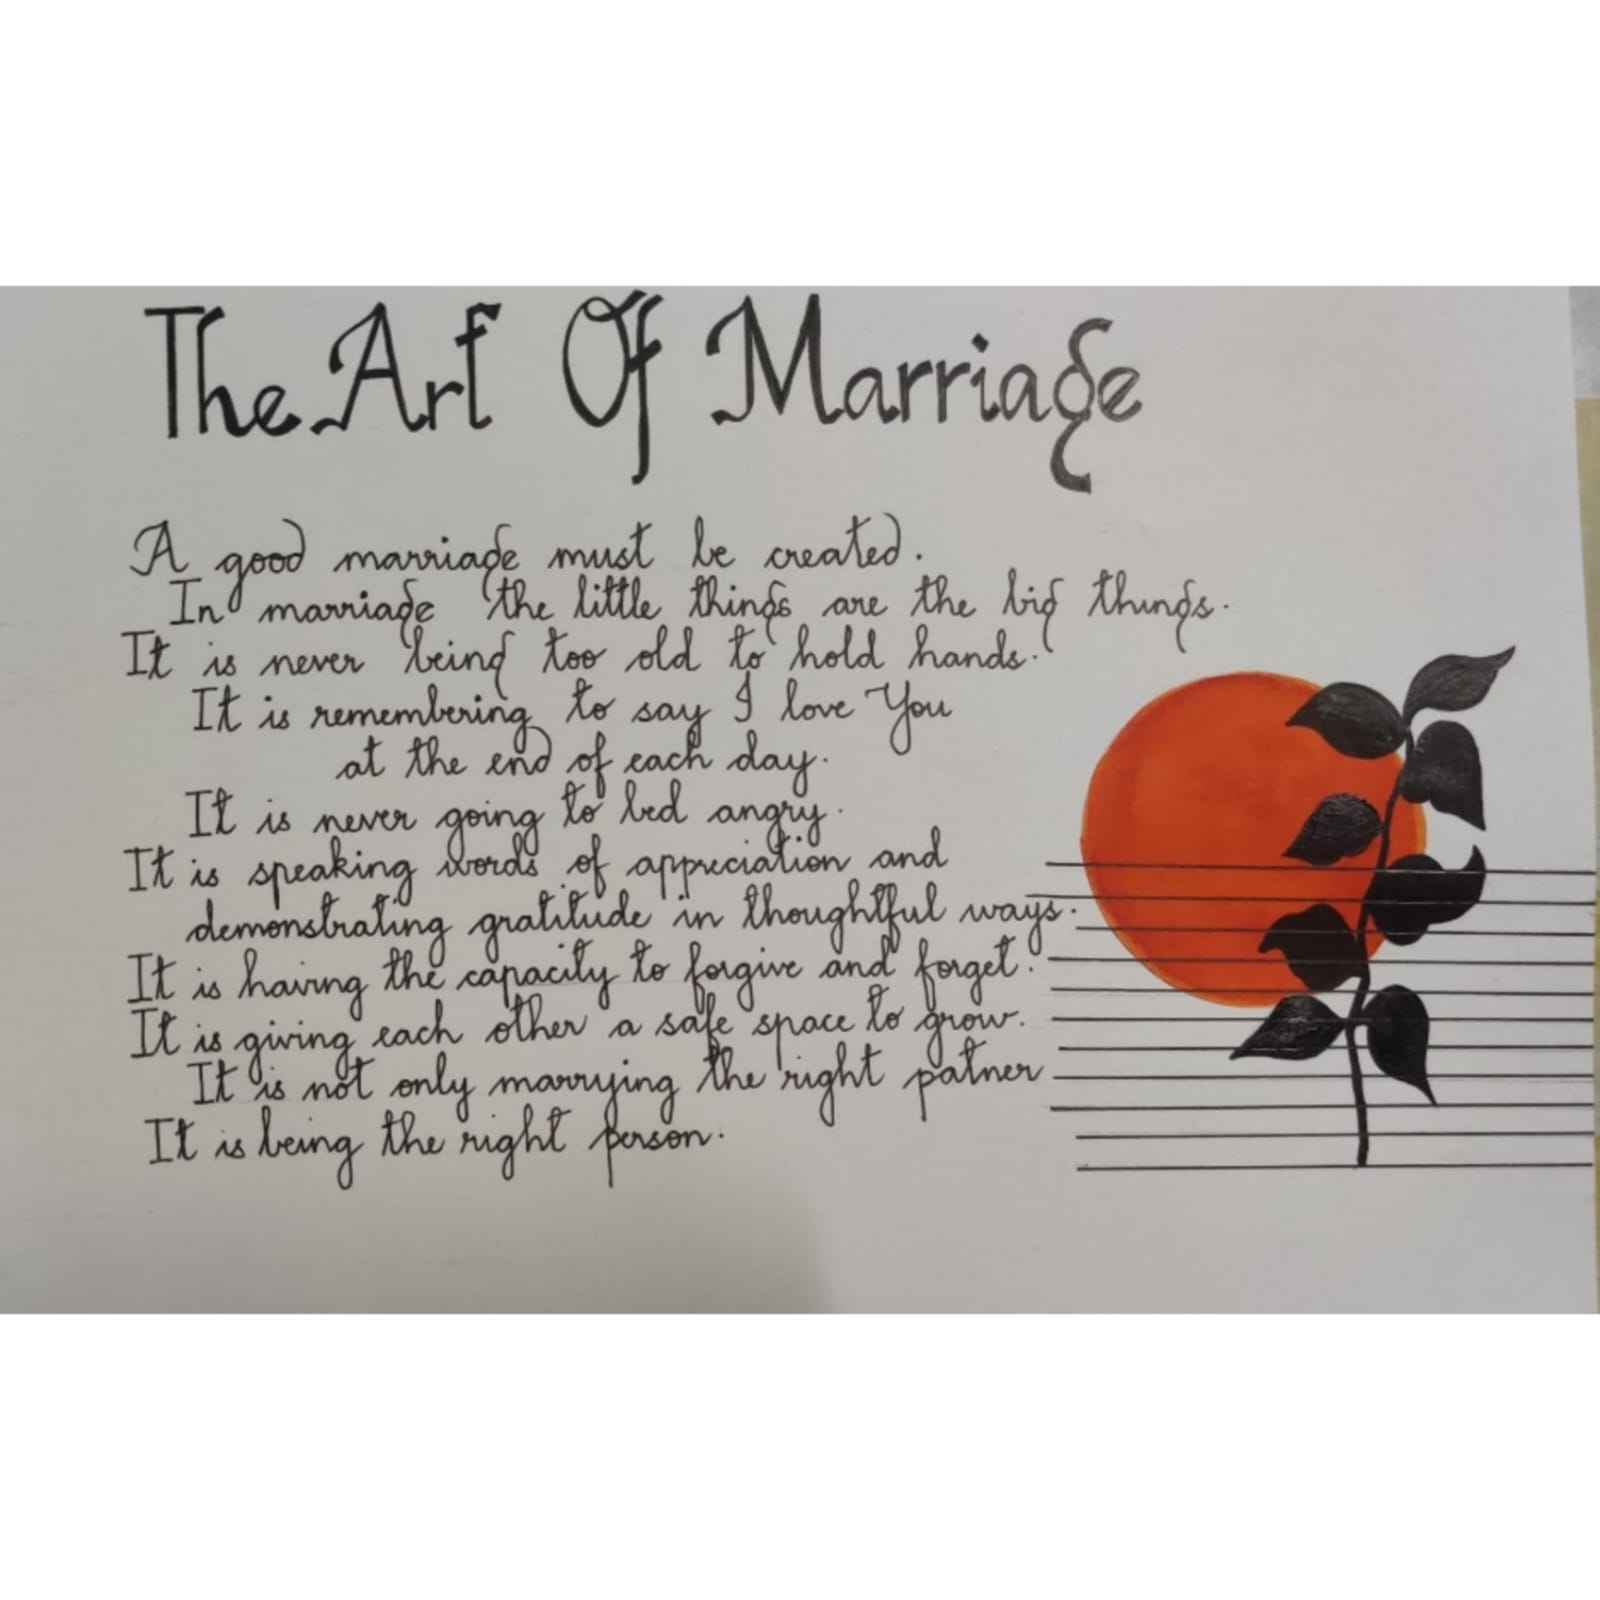 The Art Of Marriage
A good marriage must be created.
In marriage the little things are the big things.
It is never being too old to hold hands.
It is remembering to say I love You
at the end of each day.
It is never going to bed angry.
It is speaking words of appreciation and
demonstrating gratitude in thoughtful ways.
It is having the capacity to forgive and forget.
It is giving each other a safe space to grow.
It is not only marrying the right patner
It is being the right person.